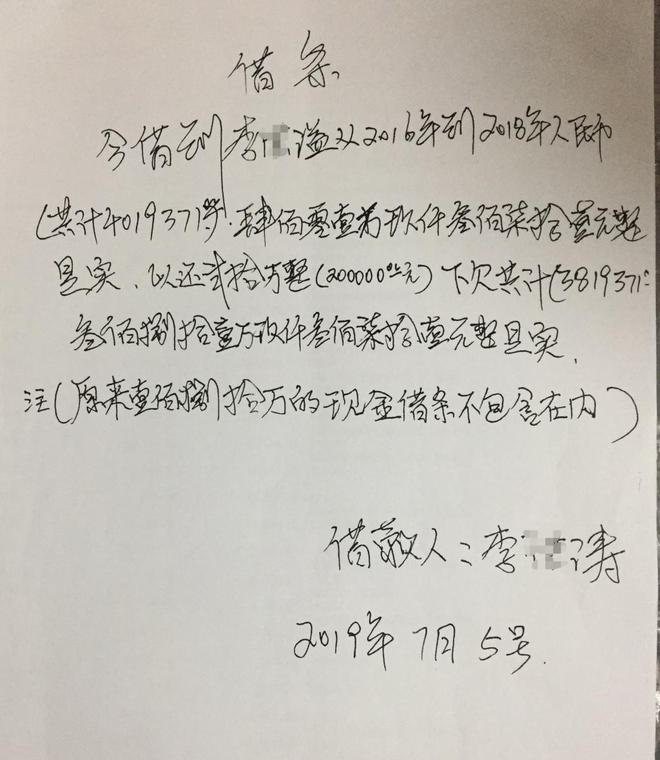 借条
今借到李 溢从2016年到2018年人民币
(共计4019371.00.肆佰零壹万玖仟叁佰柒拾壹元整
是实、以还贰拾万整(200000.00元)下欠共计(3819371:
叁佰捌拾壹万玖仟叁佰柒拾壹元整是实.
注(原来壹佰捌拾万的现金借条不包含在内)
借款人:李 涛
2019年7月5号.